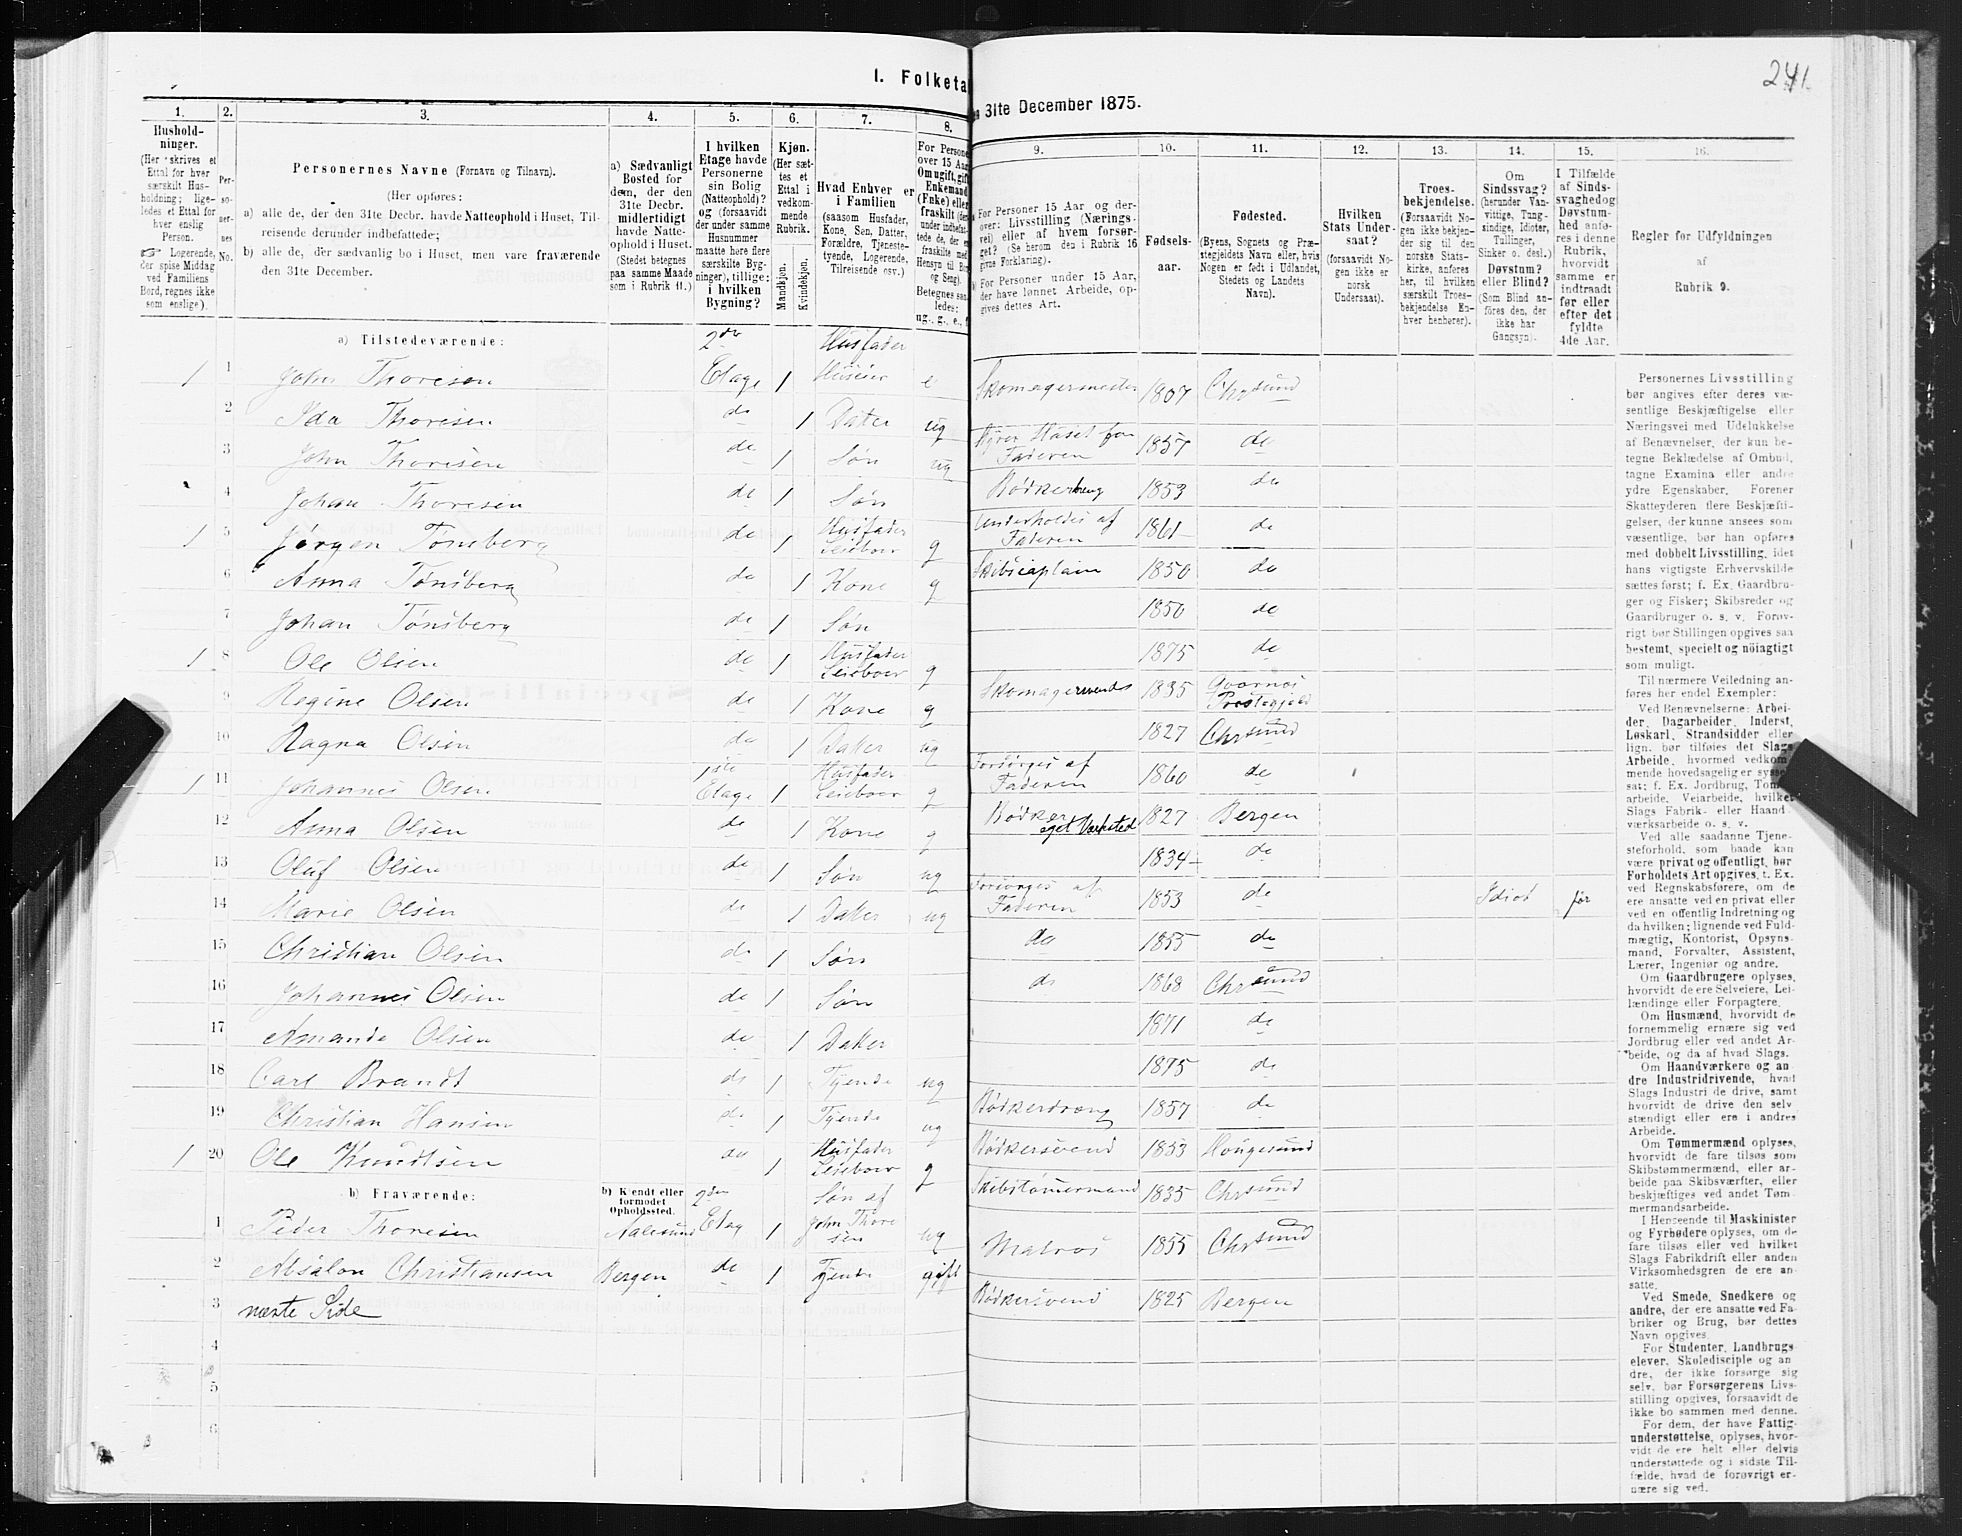 241.
I. Folketa
31te December 1875.
1.
2.
3.
4.
5.
6.
7.
8.
9.
10.
11.
12.
13.
14.
15.
16.
Hushold-
ninger.
(Her skrives et
Ettal for hver
særskilt Hus-
holdning; lige-
ledes et Ettal for
hver enslig
Person.
☞ Logerende,
der spise Middag
ved Familiens
Bord, regnes ikke
som enslige).
Per-
so-
ner-
nes
No.
Personernes Navne (Fornavn og Tilnavn).
(Her opføres:
a) alle de, der den 31te Decbr. havde Natteophold i Huset, Til-
reisende derunder indbefattede;
b) alle de, der sædvanlig bo i Huset, men vare fraværende
den 31te December.
a) Sædvanligt
Bosted for
dem, der den
31te Decbr.
midlertidigt
havde Natte-
ophold i Huset.
(Stedet betegnes
paa samme Maade
som i Rubrik 11.)
I hvilken
Etage havde
Personerne
sin Bolig
(Natteophold)?
og (forsaavidt
der under samme
Husnummer
maatte høre flere
særskilte Byg-
ninger), tillige:
i hvilken
Bygning?
Kjøn.
(Her sæt-
tes et
Ettal i
vedkom-
mende
Rubrik.
Mandkjøn.
Kvindekjøn.
Hvad Enhver er
i Familien
(saasom Husfader,
Kone, Søn, Datter,
Forældre, Tjeneste-
tyende, Logerende,
Tilreisende osv.)
For Persone
over 15 Aar
Om ugift, gift
Enkemand
(Enke) eller
fraskilt (de
under indbefat-
tede de, der e
fraskilte med
Hensyn til Bo
og Seng).
Betegnes saa
ledes:
ug., g., e., f.
For Personer 15 Aar og der-
over: Livsstilling (Nærings-
vei) eller af hvem forsør-
get? (Se herom den i Rubrik 16
givne Forklaring).
For Personer under 15 Aar,
der have lønnet Arbeide, op-
gives dettes Art.
Fødsels-
aar.
Fødested.
(Byens, Sognets og Præ-
stegjeldets Navn eller, hvis
Nogen er født i Udlandet,
Stedets og Landets
Navn).
Hvilken
Stats Under-
saat?
(forsaavidt No-
gen ikke er
norsk
Undersaat).
Troes-
bekjendelse.
(Forsaavidt No-
gen ikke bekjen-
der sig til den
norske Stats-
kirke, anføres
her, til hvilken
særskilt Troes-
bekjendelse En-
hver henhører).
Om
Sindssvag?
(herunder Van-
vittige, Tung-
sindige, Idioter,
Tullinger,
Sinker o. desl.)
Døvstum?
eller Blind?
(Som Blind an-
føres den, der
ikke har
Gangsyn).
I Tilfælde
af Sinds-
svaghedog
Døvstum-
hed anfø-
res i denne
Rubrik,
hvorvidt
samme er
indtraadt
før eller
efter det
fyldte
4de Aar.
Regler for Udfyldningen
af
Rubrik 9.
a) Tilstedeværende:
1 1 John Thoresen 2den Etage 1 Husfader Huseier e Skomagermester 1807 Chrsund
2 Ida Thoresen do 1 Dater ug Styrer Huset for Faderen 1857 do
3 John Thoresen do 1 Søn ug Bødker 1853 do
4 Johan Thoresen do 1 Søn Underholdes af Faderen 1861 do
1 5 Jørgen Tønsberg do 1 Husfader Leieboer g Skibscaptain 1850 do
6 Anna Tønsberg do 1 Kone g 1850 do
7 Johan Tønsberg do 1 Søn 1875 do
1 8 Ole Olsen do 1 Husfader Leieboer g Skomagersvend 1835 Qværnes Prestegjeld
9 Regine Olsen do 1 Kone g 1827 Chrsund
10 Ragna Olsen do 1 Dater ug Forsørges af Faderen 1860 do
1 11 Johannes Olsen 1ste Etage 1 Husfader Leieboer g Bødker eget Værksted 1827 Bergen
12 Anna Olsen do 1 Kone g 1834 do
13 Oluf Olsen do 1 Søn ug Forsørges af Faderen 1853 do Idiot før
14 Marie Olsen do 1 Dater ug do 1855 do
15 Christian Olsen do 1 Søn do 1868 Chrsund
16 Johannes Olsen do 1 Søn 1871 do
17 Amanda Olsen do 1 Dater 1875 do
18 Carl Brandt do 1 Tyende ug Bødkerdreng 1857 do
19 Christian Hansen do 1 Tyende ug Bødkersvend 1853 Haugesund
1 20 Ole Knudtsen do 1 Husfader Leieboer g Skibstømermand 1835 Chrsund
b) Fraværende:
b) Kjendt eller
formodet
Opholdssted.
1 Peder Thoresen Aalesund 2den Etag 1 Søn af John Thoresen ug Matros 1855 Chrsund
2 Absalon Christiansen Bergen do 1 Tjende gift Bødkersvend 1825 Bergen
3 næste Side
4
5
6
Personernes Livsstilling
bør angives efter deres væ-
sentlige Beskjæftigelse eller
Næringsvei med Udelukkelse
af Benævnelser, der kun be-
tegne Beklædelse af Ombud,
tagne Examina eller andre
ydre Egenskaber. Forener
Skatteyderen flere Beskjæfti-
gelser, der kunne ansees som
væsentlige, bør han opføres
med dobbelt Livsstilling, idet
hans vigtigste Erhvervskilde
sættes først; f. Ex. Gaardbru-
ger og Fisker; Skibsreder og
Gaardbruger o. s. v. Forøv-
rigt bør Stillingen opgives saa
bestemt, specielt og nöiagtigt
som muligt.
Til nærmere Veiledning an-
føres her endel Exempler:
Ved Benævnelserne: Arbei-
der, Dagarbeider, Inderst,
Løskarl, Strandsidder eller
lign. bør tilføies det Slags
Arbeide, hvormed vedkom-
mende hovedsagelig er syssel-
sat; f. Ex. Jordbrug, Tom
arbeide, Veiarbeide, hvilket
Slags Fabrik- eller Haand
værksarbeide o. s. v.
Ved alle saadanne Tjene-
steforhold, som baade kan
være privat og offentligt, bør
Forholdets Art opgives, t. Ex.
ved Regnskabsførere, om de
ere ansatte ved en privat eller
ved en offentlig Indretning og
da hvilken; lignende ved Fuld-
mægtig, Kontorist, Opsyns-
mand, Forvalter, Assistent,
Lærer, Ingeniør og andre.
Om Gaardbrugere oplyses,
hvorvidt de ere Selveiere, Lei-
lændinge eller Forpagtere.
Om Husmænd, hvorvidt de
fornemmelig ernære sig ved
Jordbrug eller ved andet Ar-
beide, og da af hvad Slags.
Om Haandværkere og an
dre Industridrivende, hvad
Slags Industri de drive, samt
hvorvidt de drive den selv
stændigt eller ere i andres
Arbeide.
Om Tømmermænd oplyses,
hvorvidt de fare tilsøs som
Skibstømmermænd, eller ar-
beide paa Skibsværfter, eller
beskjæftiges ved andet Tøm-
mermandsarbeide.
I Henseende til Maskinister
og Fyrbødere oplyses, om de
fare tilsøs eller ved hvilket
Slags Fabrikdrift eller anden
Virksomhedsgren de ere an-
satte.
Ved Smede, Snedkere og
andre, der ere ansatte ved Fa-
briker og Brug, bør dettes
Navn opgives.
For Studenter, Landbrugs-
elever, Skoledisciple og an
dre, der ikke forsørge sig
selv, bør Forsørgerens Livs-
stilling opgives, forsaavidt de
ikke bo sammen med denne.
For dem, der have Fattig-
understøttelse, oplyses, hvor-
vidt de ere helt eller delvis
understøttede og i sidste Til-
fælde, hvad de forøvrigt er-
nære sig ved.